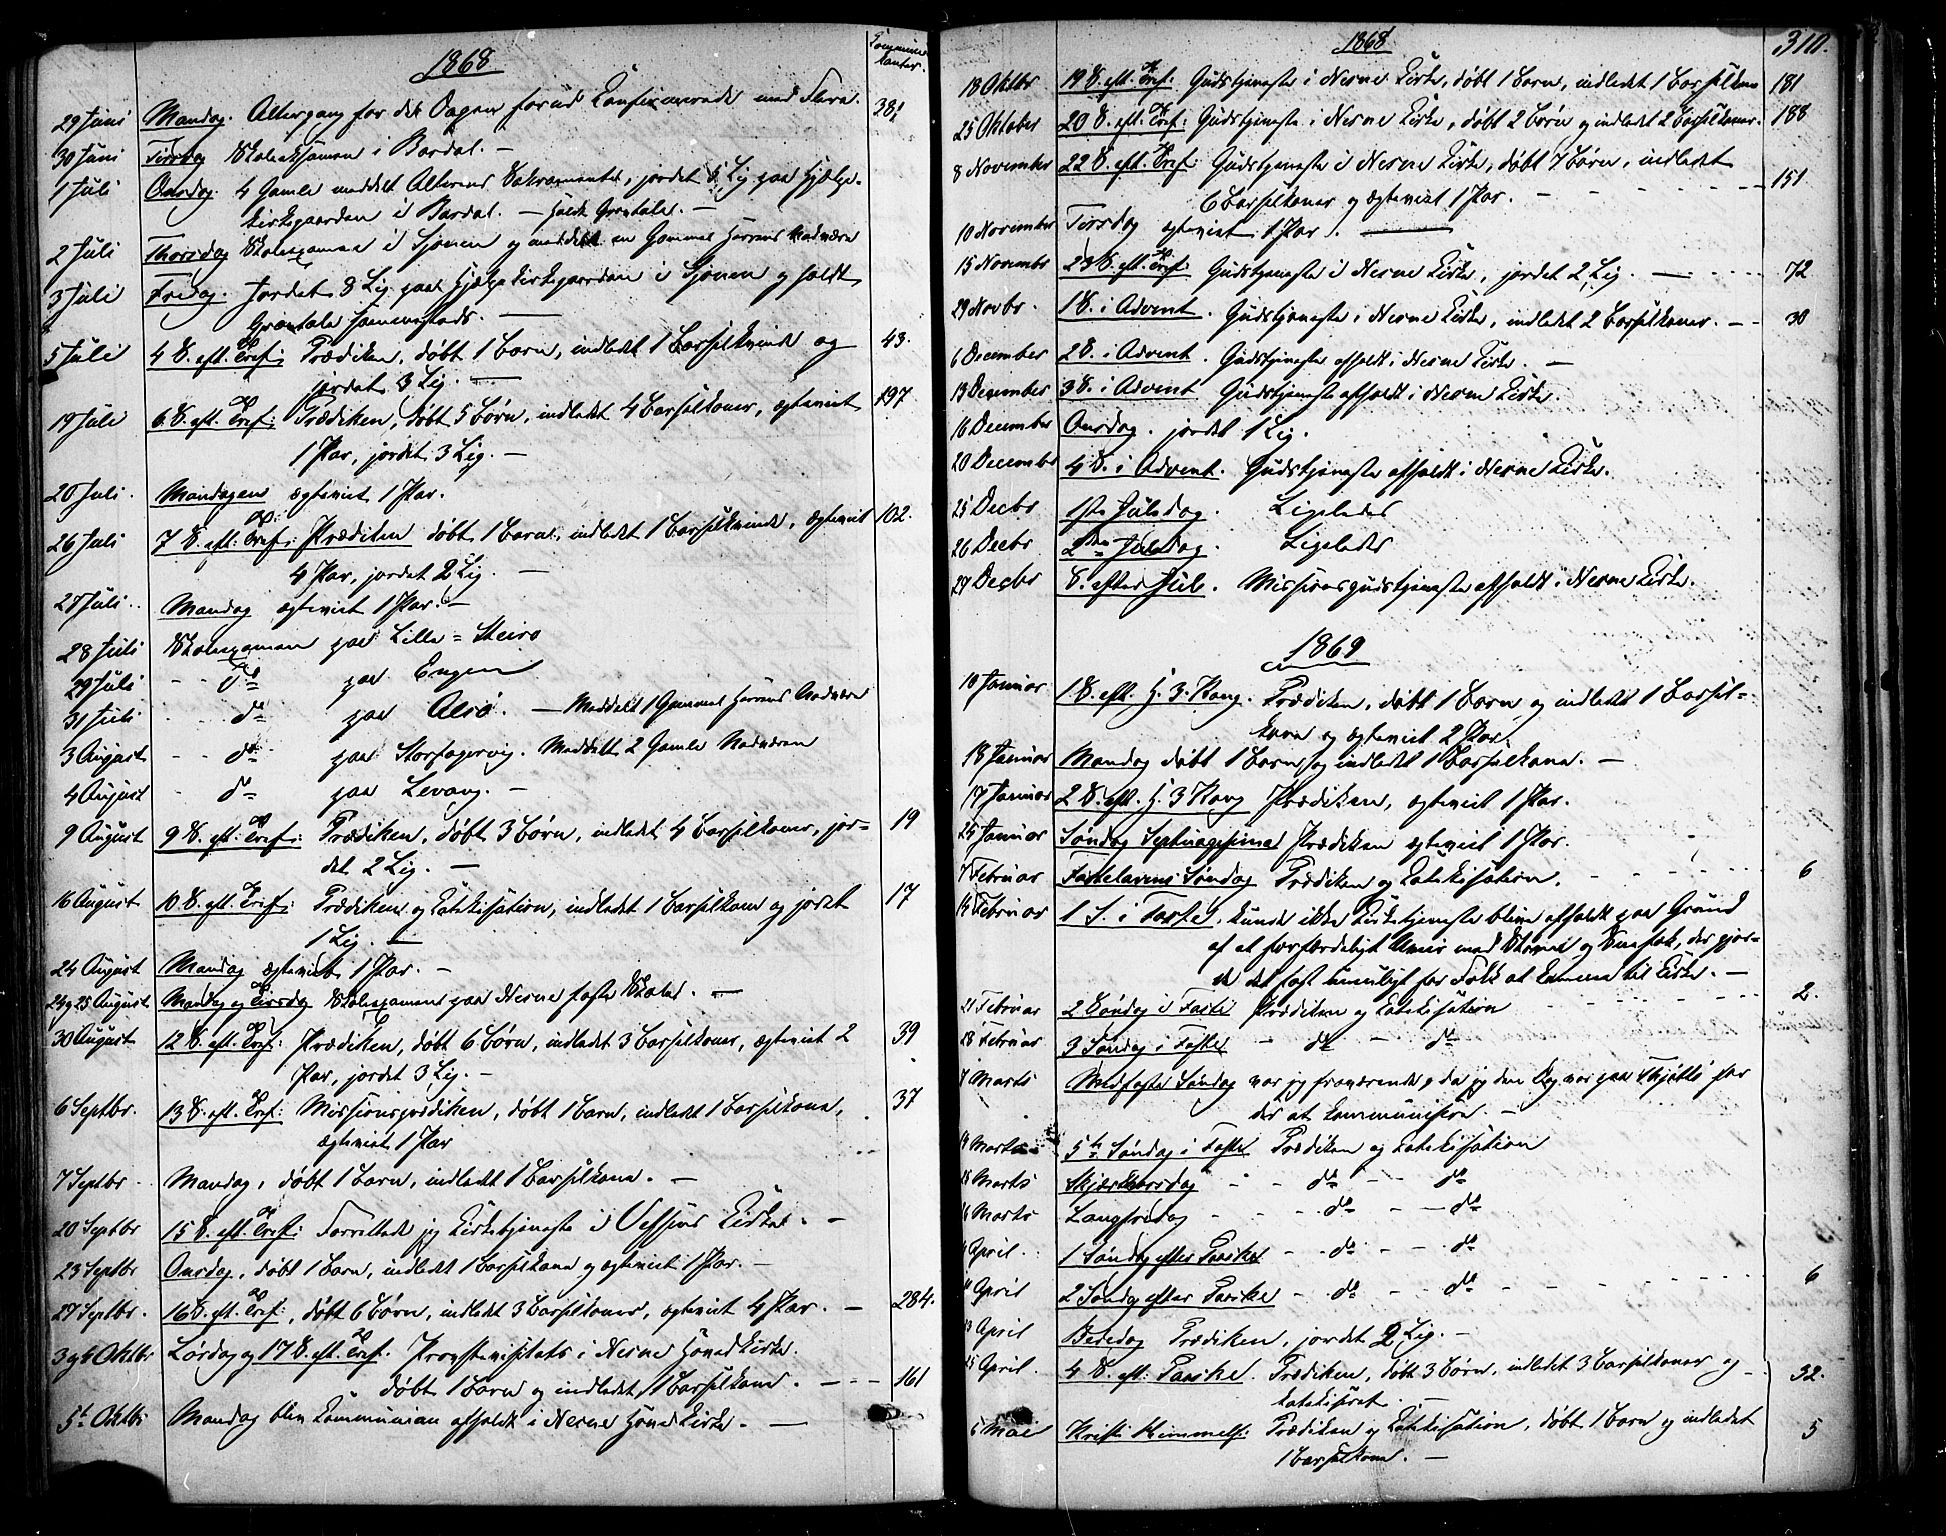 1868
Communi-
kanter.
29 Juni Mandag. Altergang for det Dagen forud Confirmerede med Flere. 381
30 Juni Tirsdag Skoleexamen i Bardal. —
1 Juli Onsdag. 4 Gamle meddelt Alterens Sakramentet, jordet 5 Lig paa Hjælpe-
kirkegaarden i Bardal. — holdt Grøntale. —
2 Juli Thorsdag Skoleexamen i Sjonen og meddelt en Gammel Herrens Nadvære
3 Juli Fredag. Jordet 8 Lig paa Hjælpekirkegaarden i Sjonen og holdt
Gravtale sammesteds. —
5 Juli 4 S. eft. Tref: Prædiken, døbt 1 Barn, indledet 1 Barselkvinde og 43.
jordet 3 Lig. —
19 Juli 6 S. eft. Tref: Prædiken, døbt 5 Børn, indledet 4 Barselkoner, ægteviet 197
1 Par, jordet 3 Lig. —
20 Juli. Mandagen ægteviet 1 Par.
26 Juli 7 S. eft: Tref: Prædiken døbt 1 Barn, indledet 1 Barselkvinde, ægteviet 102.
4 Par, jordet 2 Lig. —
27 Juli. Mandag ægteviet 1 Par. —
28 Juli Skoleexamen paa Lille-Steiro
29 Juli - - Do paa Engen
31 Juli - - do paa Alsø. — Meddelt 1 Gammel Herrens Nadvære
3 August - - do paa Storfagervig. Meddelt 2 Gamle Nadveren
4 August - do paa Levang. —
9 August 9 S. eft: Tref: Prædiken, døbt 3 Børn, indledet 4 Barselkoner, jor- 19
det 2 Lig. —
16 August 10 S. eft. Tref: Prædiken og Katekisation, indledet 1 Barselkone og jordet 17
1 Lig. —
24 August Mandag ægteviet 1 Par. —
24 og 25 August Mandag og Tirsdag Skoleexamen paa Nesne faste Skole. —
30 August 12 S. eft. Tref: Prædiken, døbt 6 Børn, indledet 3 Barselkoner, ægteviet 2 39
Par, jordet 3 Lig. —
6 Septbr. 13 S. eft. Tref: Missionsprædiken, døbt 1 Barn, indledet 1 Barselkone, 37
ægteviet 1 Par
7 Septbr Mandag, døbt 1 Barn, indledet 1 Barselkone. —
20 Septbr 15 S. eft. Tref: Forrettede jeg Kirketjeneste i Vefsens Kirke. —
23 Septbr Onsdag, døbt 1 Barn, indledet 1 Barselkone og ægteviet 1 Par. —
27 Septbr. 16 S. eft. Tref:, døbt 6 Børn, indledet 3 Barselkoner, ægteviet 4 Par. — 284.
3 og 4 Oktbr Lørdag og 17 S. eft. Tref: Provstevisitats i Nesne Hovedkirke.
døbt 1 Barn og indledet 1 Barselkone. — 161
5te Oktbr Mandag blev Communion afholdt i Nesne Hovedkirke. —
1868
310.
18 Oktbr 19 S. eft. Tref: Gudstjeneste i Nesne Kirke, døbt 1 Barn, indledet 1 Barselkone 181
25 Oktober 20 S. eft. Tref: Gudstjeneste i Nesne Kirke, døbt 2 Børn og indledet 2 Barselkoner. 188
8 November 22 S. eft. Tref: Gudstjeneste i Nesne Kirke, døbt 7 Børn, indledet
6 Barselkoner og ægteviet 1 Par. — 151
10 November Tirsdag ægteviet 1 Par. —
15 Novembr 23 S. eft. Tref: Gudstjeneste i Nesne Kirke, jordet 2 Lig. — 72
29 Novbr. 1 S. i Advent. Gudstjeneste i Nesne Kirke, indledet 2 Barselkoner. — 30
6 December 2 S. i Advent. Gudstjeneste afholdt i Nesne Kirke. —
13 December 3 S. i Advent Gudstjeneste afholdt i Nesne Kirke.
16 December Onsdag. jordet 1 Lig.
20 Decembr 4 S. i Advent. Gudstjeneste afholdt i Nesne Kirke.
25 Decbr 1ste Juledag. Ligeledes
26 Decbr 2den Juledag. Ligeledes
27 Decbr S. efter Jul. Missionsgudstjeneste afholdt i Nesne Kirke.
1869
10 Januar 1 S. eft. H. 3. Kong. Prædiken, døbt 1 Barn og indledet 1 Barsel-
kone og ægteviet 2 Par
18 Januar Mandag døbt 1 Barn og indledet 1 Barselkone. —
17 Januar 2 S. eft. H. 3 Kong Prædiken, ægteviet 1 Par.
24 Januar Søndag Septuagesima Prædiken ægteviet 1 Par.
7 Februar Fastelavens Søndag Prædiken og Katekisation. 6
14 Februar 1 S. i Faste. kunde ikke Kirketjeneste blive afholdt paa Grund
af et forfærdeligt Uveir med Storm og Snefok, der gjor-
de det fast umuligt for Folk at komme til Kirke. —
21 Februar 2 Søndag i Faste Prædiken og Katekisation 2.
28 Februar 3 Søndag i Faste - do - do
7 Marts Midfaste Søndag var jeg fraværende, da jeg den Dag var paa Thjøttø for
der at kommunisere. —
14 Marts 5te Søndag i Faste Prædiken og Katekisation
Marts Skjærthorsdag - - do - - do
Marts Langfredag - - - do - - do
April. 1 Søndag efter Paaske - - do - - do
11 April 2 Søndag efter Paaske - - do - - do 6
April Bededag Prædiken, jordet 2 Lig. —
25 April. 4 S. eft: Paaske. Prædiken, døbt 3 Børn, indledet 3 Barselkoner og 32.
katekiseret. —
6 Mai Kristi Himmelf: Prædiken og Katekisation, døbt 1 Barn og indledet 5
1 Barselkone. —